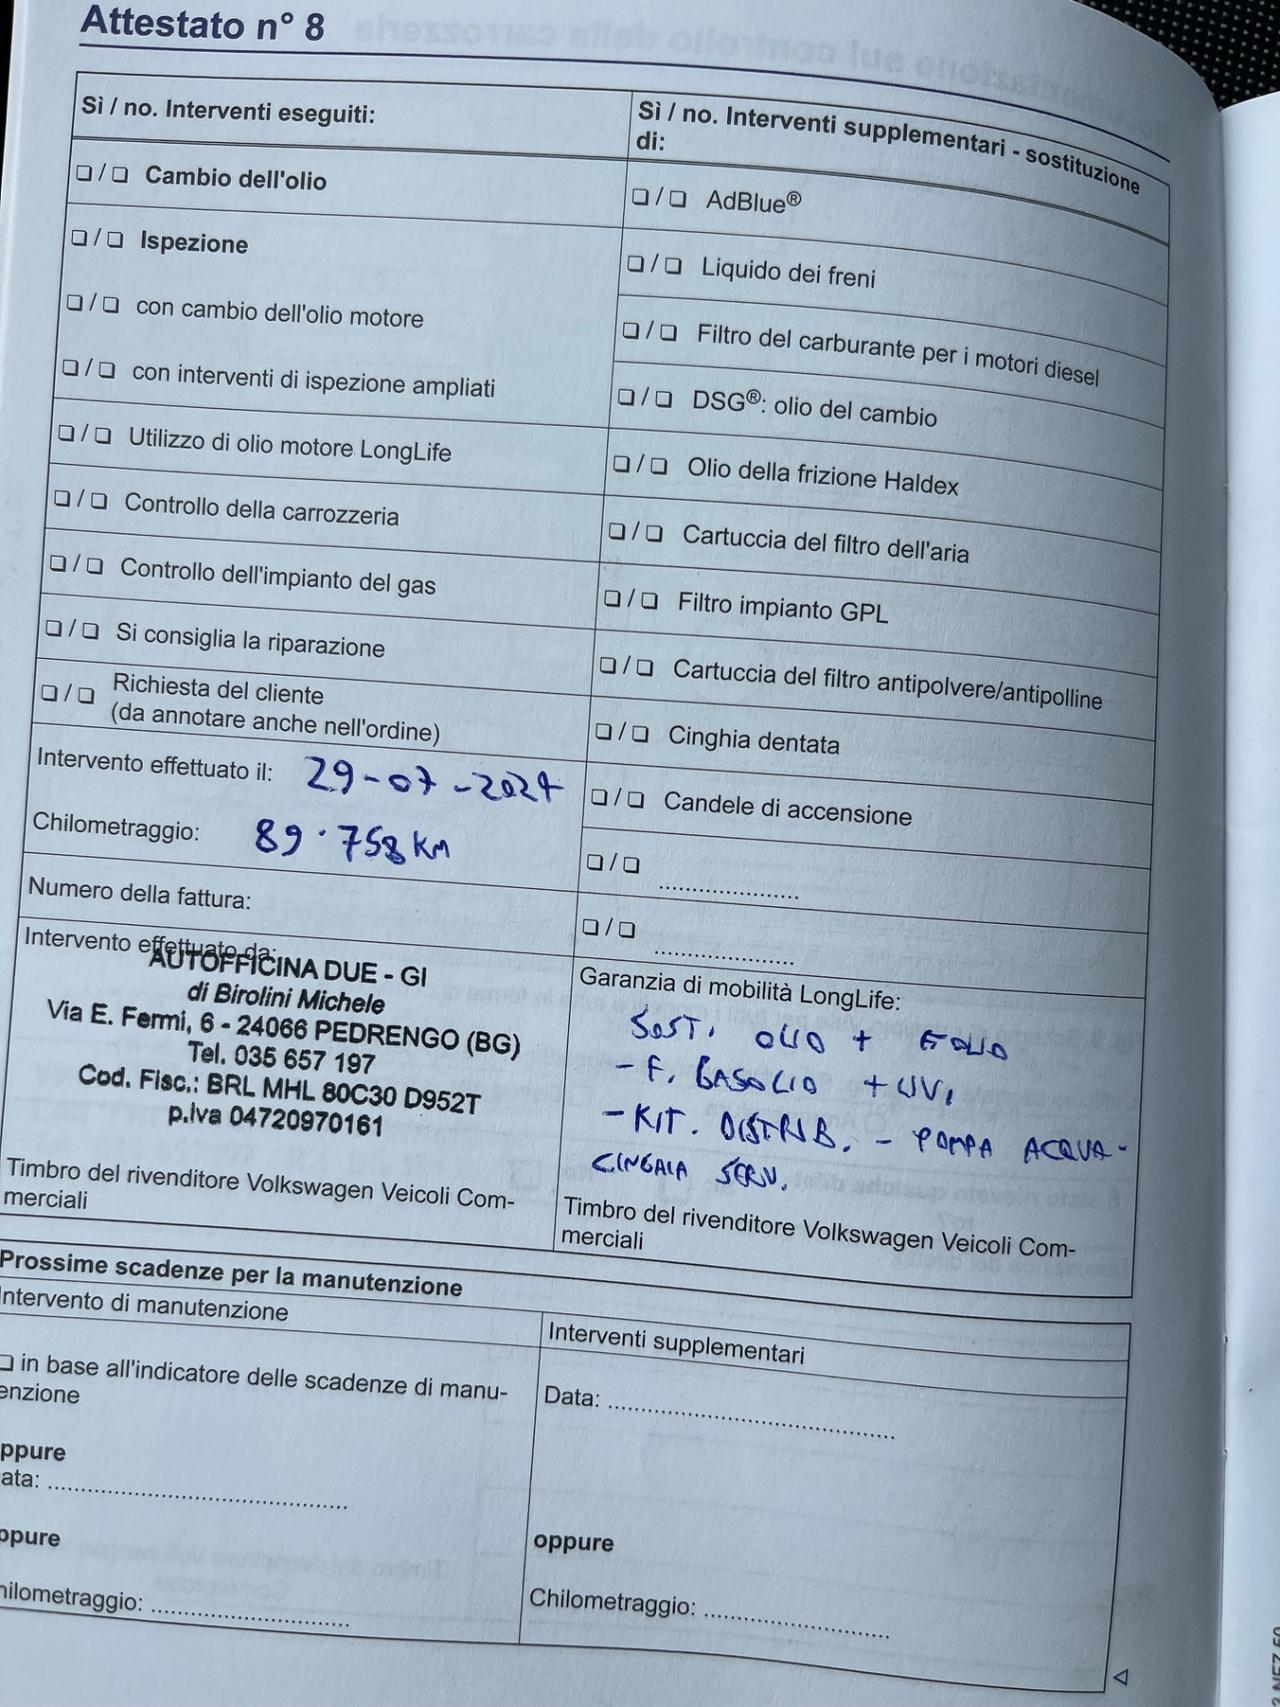 Attestato n° 8
Sì / no. Interventi eseguiti:
❏ / ❏ Cambio dell'olio
❏ / ❏ Ispezione
❏ / ❏ con cambio dell'olio motore
❏ / ❏ con interventi di ispezione ampliati
❏ / ❏ Utilizzo di olio motore LongLife
❏ / ❏ Controllo della carrozzeria
❏ / ❏ Controllo dell'impianto del gas
❏ / ❏ Si consiglia la riparazione
❏ / ❏ Richiesta del cliente
(da annotare anche nell'ordine)
Intervento effettuato il: 29-07-2024
Chilometraggio: 89.758 KM
Numero della fattura:
Intervento effettuato da:
AUTOFFICINA DUE - GI
di Birolini Michele
Via E. Fermi, 6 - 24066 PEDRENGO (BG)
Tel. 035 657 197
Cod. Fisc.: BRL MHL 80C30 D952T
p.iva 04720970161
Timbro del rivenditore Volkswagen Veicoli Com-
merciali
Sì / no. Interventi supplementari - sostituzione
di:
❏ / ❏ AdBlue®
❏ / ❏ Liquido dei freni
❏ / ❏ Filtro del carburante per i motori diesel
❏ / ❏ DSG®: olio del cambio
❏ / ❏ Olio della frizione Haldex
❏ / ❏ Cartuccia del filtro dell'aria
❏ / ❏ Filtro impianto GPL
❏ / ❏ Cartuccia del filtro antipolvere/antipolline
❏ / ❏ Cinghia dentata
❏ / ❏ Candele di accensione
❏ / ❏ .....................
❏ / ❏ .....................
Garanzia di mobilità LongLife:
SOST. OLIO + F.OLIO
- F. GASOLIO
- KIT. DISTRIB. - POMPA ACQUA -
CINGHIA SERV.
Timbro del rivenditore Volkswagen Veicoli Com-
merciali
Prossime scadenze per la manutenzione
Intervento di manutenzione
❏ in base all'indicatore delle scadenze di manu-
enzione
ppure
ata: ............................................
ppure
hilometraggio: .............................
Interventi supplementari
Data: ..........................................
oppure
Chilometraggio: ...........................